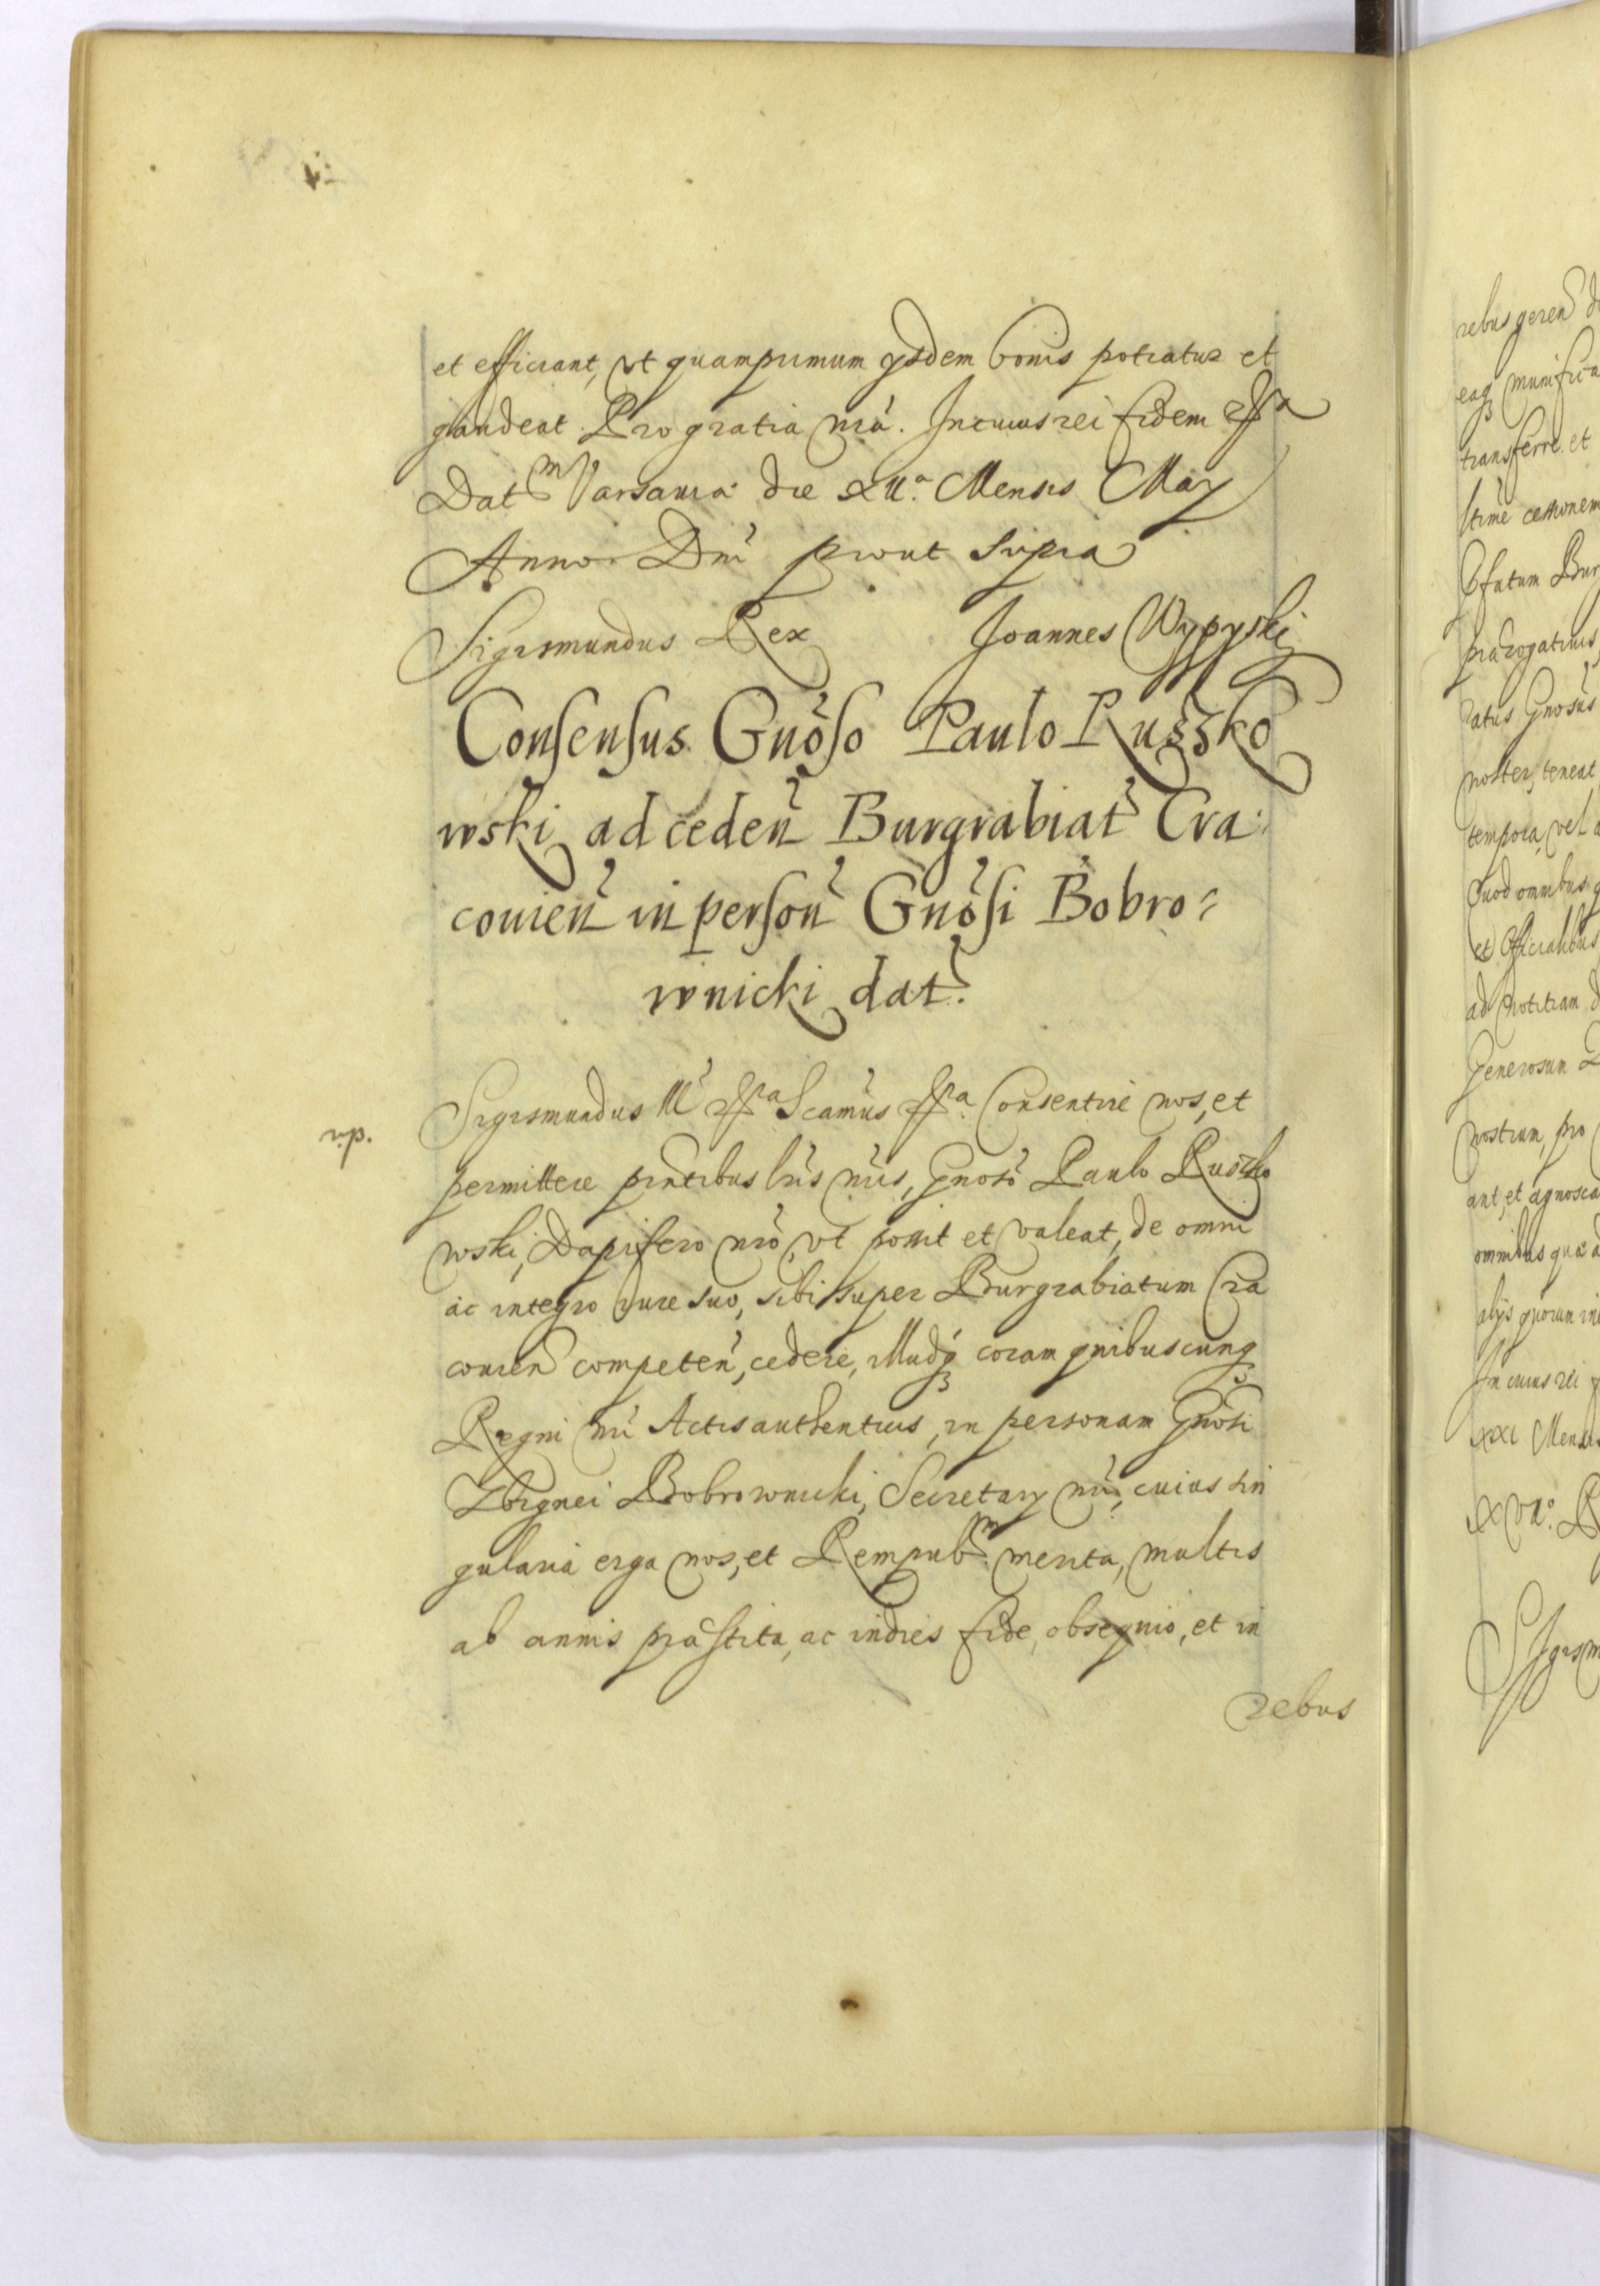 et efficiant, vt quamprimum ysdem bonis potiatur et
gaudeat. Pro gratia nrã. In cuius rei fidem
Dat Varsauiæ die Mensis May
Anno Dni prout supra
Sigismundus Rex Joannes Wypyski
Consensus Gnõso Paulo Ruszko
wski ad ceden Burgrabiat Cra:
couien in person Gnõsi Bobro=
wnicki dat.
Sigismundus III Scamus Consentire nos, et
permittere pntibus lris nris, Gnoso Paulo Ruszko
wski, Dapifero nro, vt possit et valeat, de omni
ac integro iure suo, sibi super Burgrabiatum Cra
couien competen, cedere, illudq coram quibuscunq
Regni nri Actis authenticis, in personam Gnosi
Zbignei Bobrownicki, Secretary nri, cuius sin
gularia erga nos, et Rempub merita, multis
ab annis præstita, ac indies fide, obsequio, et in
rebus
rebus geren
eaq munifica
transferre et
cessionem
Bur
prærogatiuis
Gnosus
noster, teneat
tempora, vel
Quod omnibus
et Officialibus
ad notitiam
Generosum
nostrum, pro
ant, et agnosca
omnibus quæ
alijs quorum in
In cuius rei
XXI Mensis
Sigism